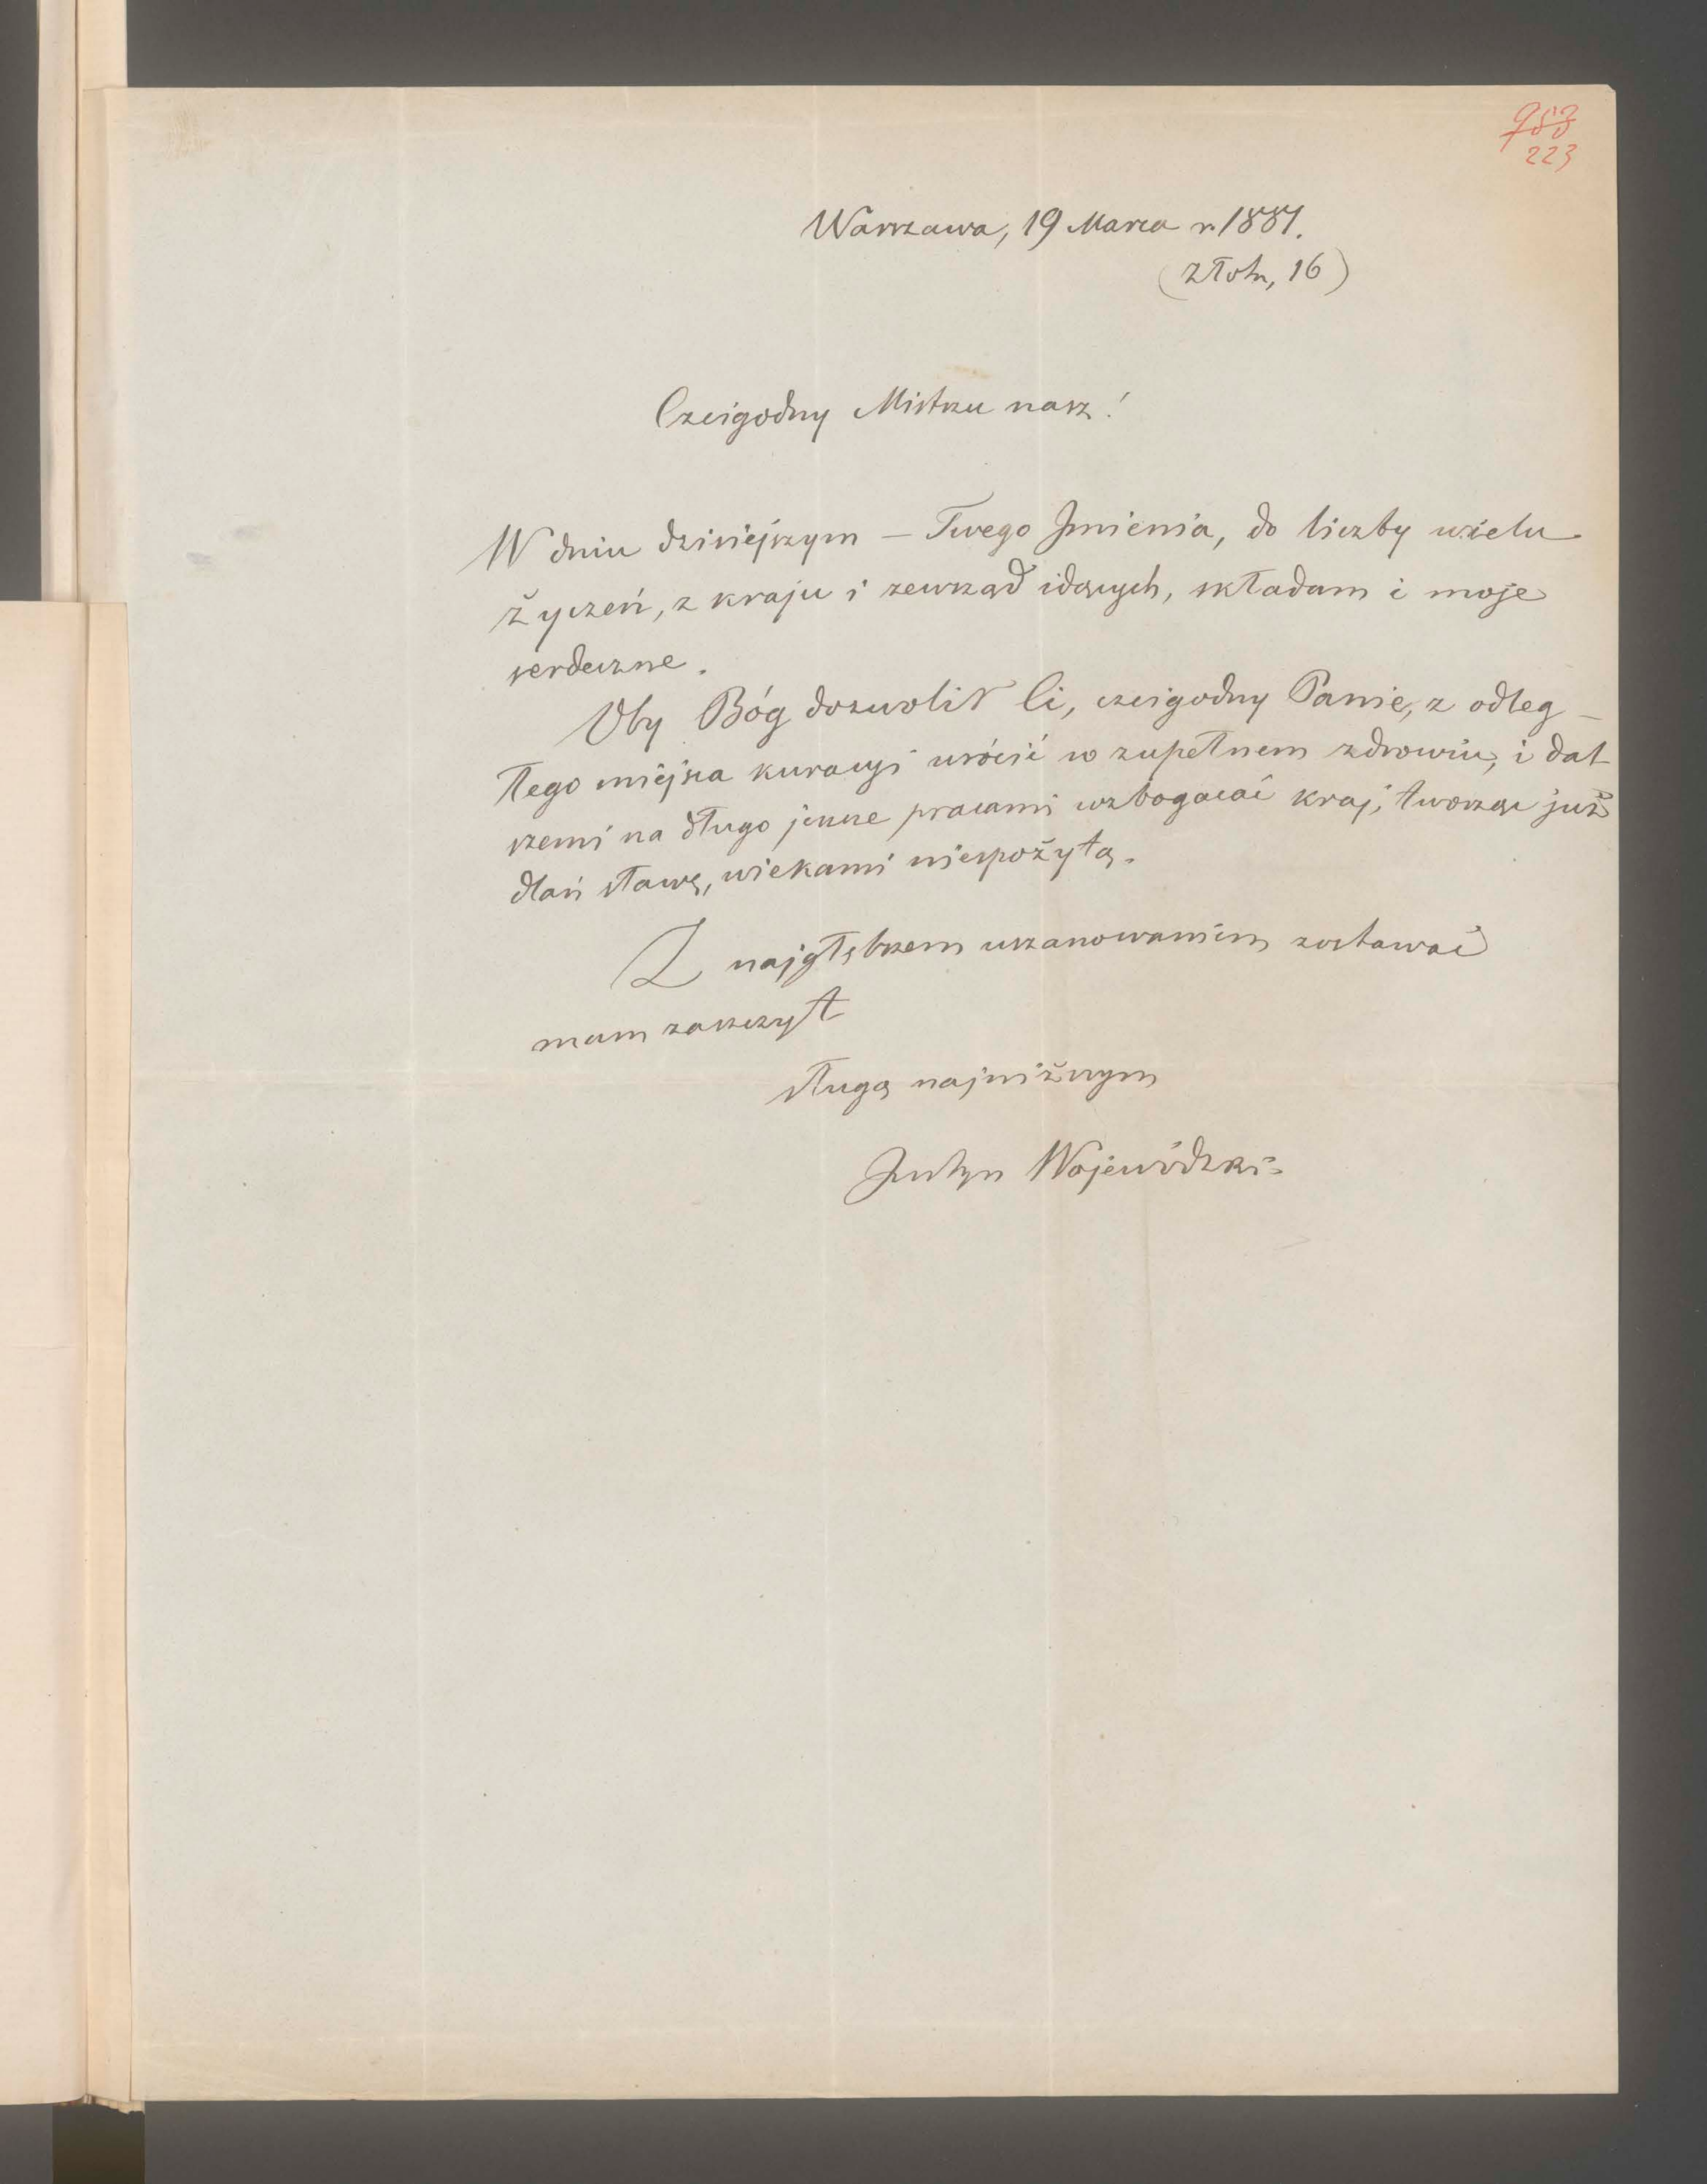 223
Warszawa, 19 Marca r. 1887.
(Złota, 16)
Czcigodny Mistrzu nasz!
W dniu dzisiejszym – Twego Imienia, do liczby wielu
życzeń, z kraju i zewsząd idących, składam i moje
serdeczne.
Oby Bóg dozwolił Ci, czcigodny Panie, z odleg-
łego miejsca kuracyi wrócić w zupełnem zdrowiu, i dal
szemi na długo jeszcze pracami wzbogacać kraj, tworząc już
dlań sławę, wiekami niespożytą.
Z najgłębszem uszanowaniem zostawać
mam zaszczyt
sługą najniższym
Justyn Wojewódzki